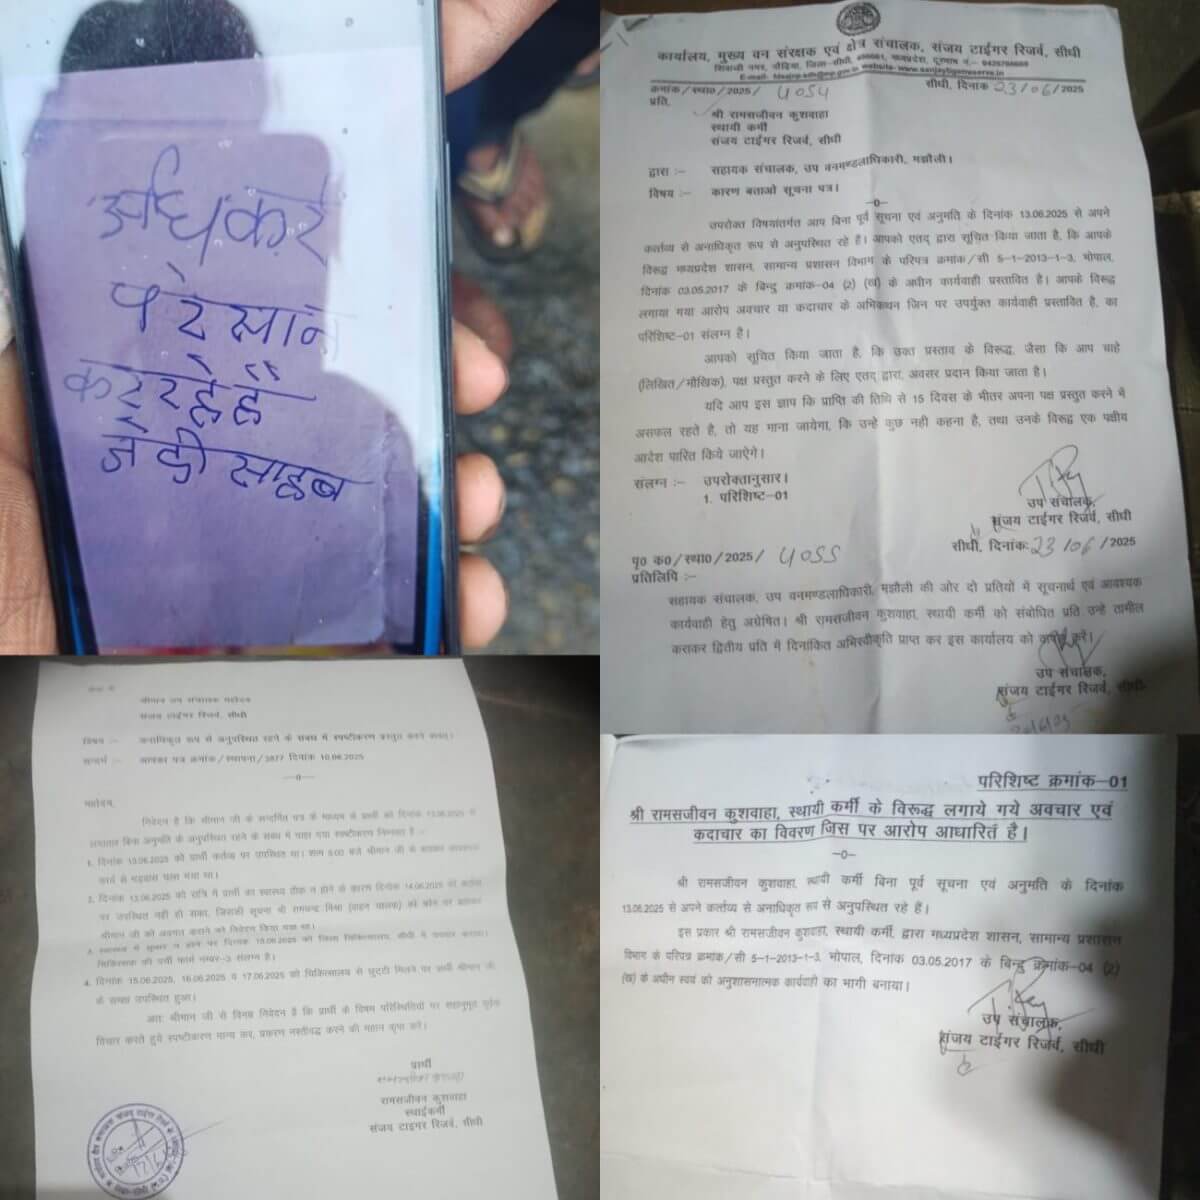 अधिकारी
परेसान
कर रहे हैं
जे डी साहब
कार्यालय, मुख्य वन संरक्षक एवं क्षेत्र संचालक, संजय टाईगर रिजर्व, सीधी
क्रमांक/स्था0/2025/ 4054
सीधी, दिनांक 23/06/2025
प्रति,
श्री रामसजीवन कुशवाहा
स्थायी कर्मी
संजय टाईगर रिजर्व, सीधी
द्वारा :- सहायक संचालक, उप वनमण्डलाधिकारी, मझौली।
विषय :- कारण बताओ सूचना पत्र।
—0—
उपरोक्त विषयांतर्गत आप बिना पूर्व सूचना एवं अनुमति के दिनांक 13.06.2025 से अपने
कर्त्तव्य से अनाधिकृत रूप से अनुपस्थित रहे हैं। आपको एतद् द्वारा सूचित किया जाता है, कि आपके
विरूद्ध मध्यप्रदेश शासन, सामान्य प्रशासन विभाग के परिपत्र क्रमांक/सी 5-1-2013-1-3, भोपाल,
दिनांक 03.05.2017 के बिन्दु क्रमांक-04 (2) (ख) के अधीन कार्यवाही प्रस्तावित है। आपके विरूद्ध
लगाया गया आरोप अवचार या कदाचार के अभिकथन जिन पर उपर्युक्त कार्यवाही प्रस्तावित है, का
परिशिष्ट-01 संलग्न है।
आपको सूचित किया जाता है, कि उक्त प्रस्ताव के विरूद्ध, जैसा कि आप चाहे
(लिखित/मौखिक), पक्ष प्रस्तुत करने के लिए एतद् द्वारा, अवसर प्रदान किया जाता है।
यदि आप इस ज्ञाप कि प्राप्ति की तिथि से 15 दिवस के भीतर अपना पक्ष प्रस्तुत करने में
असफल रहते है, तो यह माना जायेगा, कि उन्हे कुछ नही कहना है, तथा उनके विरूद्ध एक पक्षीय
आदेश पारित किये जाऐंगे।
संलग्न :- उपरोक्तानुसार।
1. परिशिष्ट-01
उप संचालक,
संजय टाईगर रिजर्व, सीधी
सीधी, दिनांकः 23/06/2025
पृ0 क0/स्था0/2025/ 4055
प्रतिलिपि :-
सहायक संचालक, उप वनमण्डलाधिकारी, मझौली की ओर दो प्रतियो में सूचनार्थ एवं आवश्यक
कार्यवाही हेतु अग्रेषित। श्री रामसजीवन कुशवाहा, स्थायी कर्मी को संबोधित प्रति उन्हे तामील
कराकर द्वितीय प्रति में दिनांकित अभिस्वीकृति प्राप्त कर इस कार्यालय को करें।
उप संचालक,
संजय टाईगर रिजर्व, सीधी
श्रीमान उप संचालक महोदय
संजय टाईगर रिजर्व, सीधी
विषय :- अनाधिकृत रूप से अनुपस्थित रहने के संबंध में स्पष्टीकरण प्रस्तुत करने बावत्।
सन्दर्भ :- आपका पत्र क्रमांक/स्थापना/3877 दिनांक 10.06.2025
—0—
महोदय,
निवेदन है कि श्रीमान जी के सन्दर्भित पत्र के माध्यम से प्रार्थी को दिनांक 13.06.2025 से
लगातार बिना अनुमति के अनुपस्थित रहने के संबंध में चाहा गया स्पष्टीकरण निम्नवत है :-
1. दिनांक 13.06.2025 को प्रार्थी कर्तव्य पर उपस्थित था। शाम 5:00 बजे श्रीमान जी के
कार्य से मड़वास चला गया था।
2. दिनांक 13.06.2025 को रात्रि में प्रार्थी का स्वास्थ्य ठीक न होने के कारण दिनांक 14.06.2025 को कर्तव्य
पर उपस्थित नही हो सका, जिसकी सूचना श्री रामचन्द्र मिश्रा (वाहन चालक) को फोन पर बताकर
श्रीमान जी को अवगत कराने को निवेदन किया गया था।
3. स्वास्थ्य में सुधार न होने पर दिनांक 15.06.2025 को जिला चिकित्सालय, सीधी में उपचार कराया।
चिकित्सक की पर्ची फार्म नम्बर-3 संलग्न है।
4. दिनांक 15.06.2025, 16.06.2025 व 17.06.2025 को चिकित्सालय से छुट्टी मिलने पर प्रार्थी श्रीमान जी
के समक्ष उपस्थित हुआ।
अतः श्रीमान जी से विनम्र निवेदन है कि प्रार्थी के विषम परिस्थितियों पर सहानुभूति पूर्वक
विचार करते हुये स्पष्टीकरण मान्य कर, प्रकरण नस्तीबद्ध करने की महान कृपा करें।
प्रार्थी
रामसजीवन कुशवाहा
रामसजीवन कुशवाहा
स्थाईकर्मी
संजय टाइगर रिजर्व, सीधी
परिशिष्ट क्रमांक-01
श्री रामसजीवन कुशवाहा, स्थायी कर्मी के विरूद्ध लगाये गये अवचार एवं
कदाचार का विवरण जिस पर आरोप आधारित है।
—0—
श्री रामसजीवन कुशवाहा, स्थायी कर्मी बिना पूर्व सूचना एवं अनुमति के दिनांक
13.06.2025 से अपने कर्त्तव्य से अनाधिकृत रूप से अनुपस्थित रहे हैं।
इस प्रकार श्री रामसजीवन कुशवाहा, स्थायी कर्मी, द्वारा मध्यप्रदेश शासन, सामान्य प्रशासन
विभाग के परिपत्र क्रमांक/सी 5-1-2013-1-3, भोपाल, दिनांक 03.05.2017 के बिन्दु क्रमांक-04 (2)
(ख) के अधीन स्वयं को अनुशासनात्मक कार्यवाही का भागी बनाया।
उप संचालक,
संजय टाईगर रिजर्व, सीधी